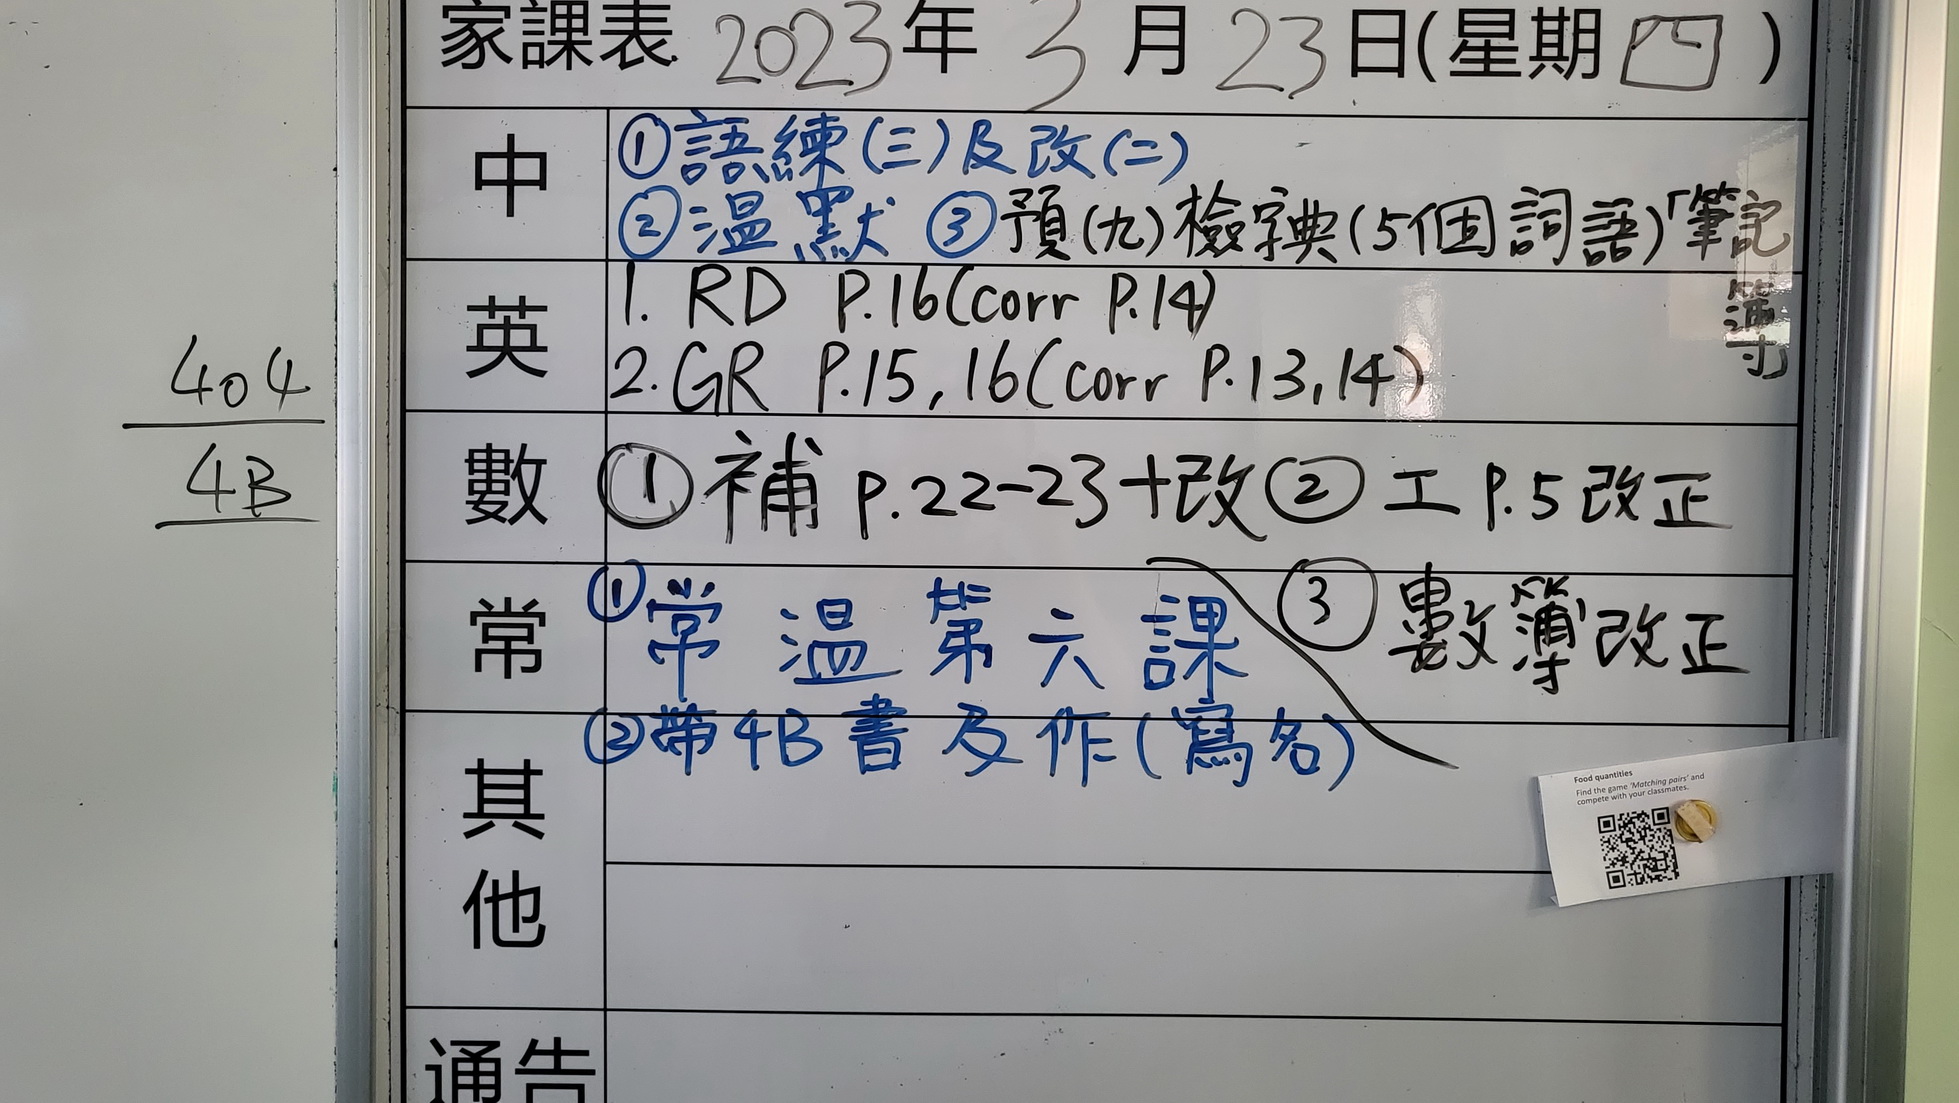 家課表 2023年 3月 23日(星期四)
中
①語練(三)及改(二)
②溫默 ③預(九)檢字典(5個詞語)「筆記
簿」
英
1. RD P.16(corr P.14)
2. GR P.15,16(corr P.13,14)
404
4B
數
①補 P.22-23+改 ②工 P.5改正
③數簿改正
常
①常溫第六課
②帶4B書及作(寫名)
其他
Food quantities
Find the game 'Matching pairs' and
compete with your classmates.
通告